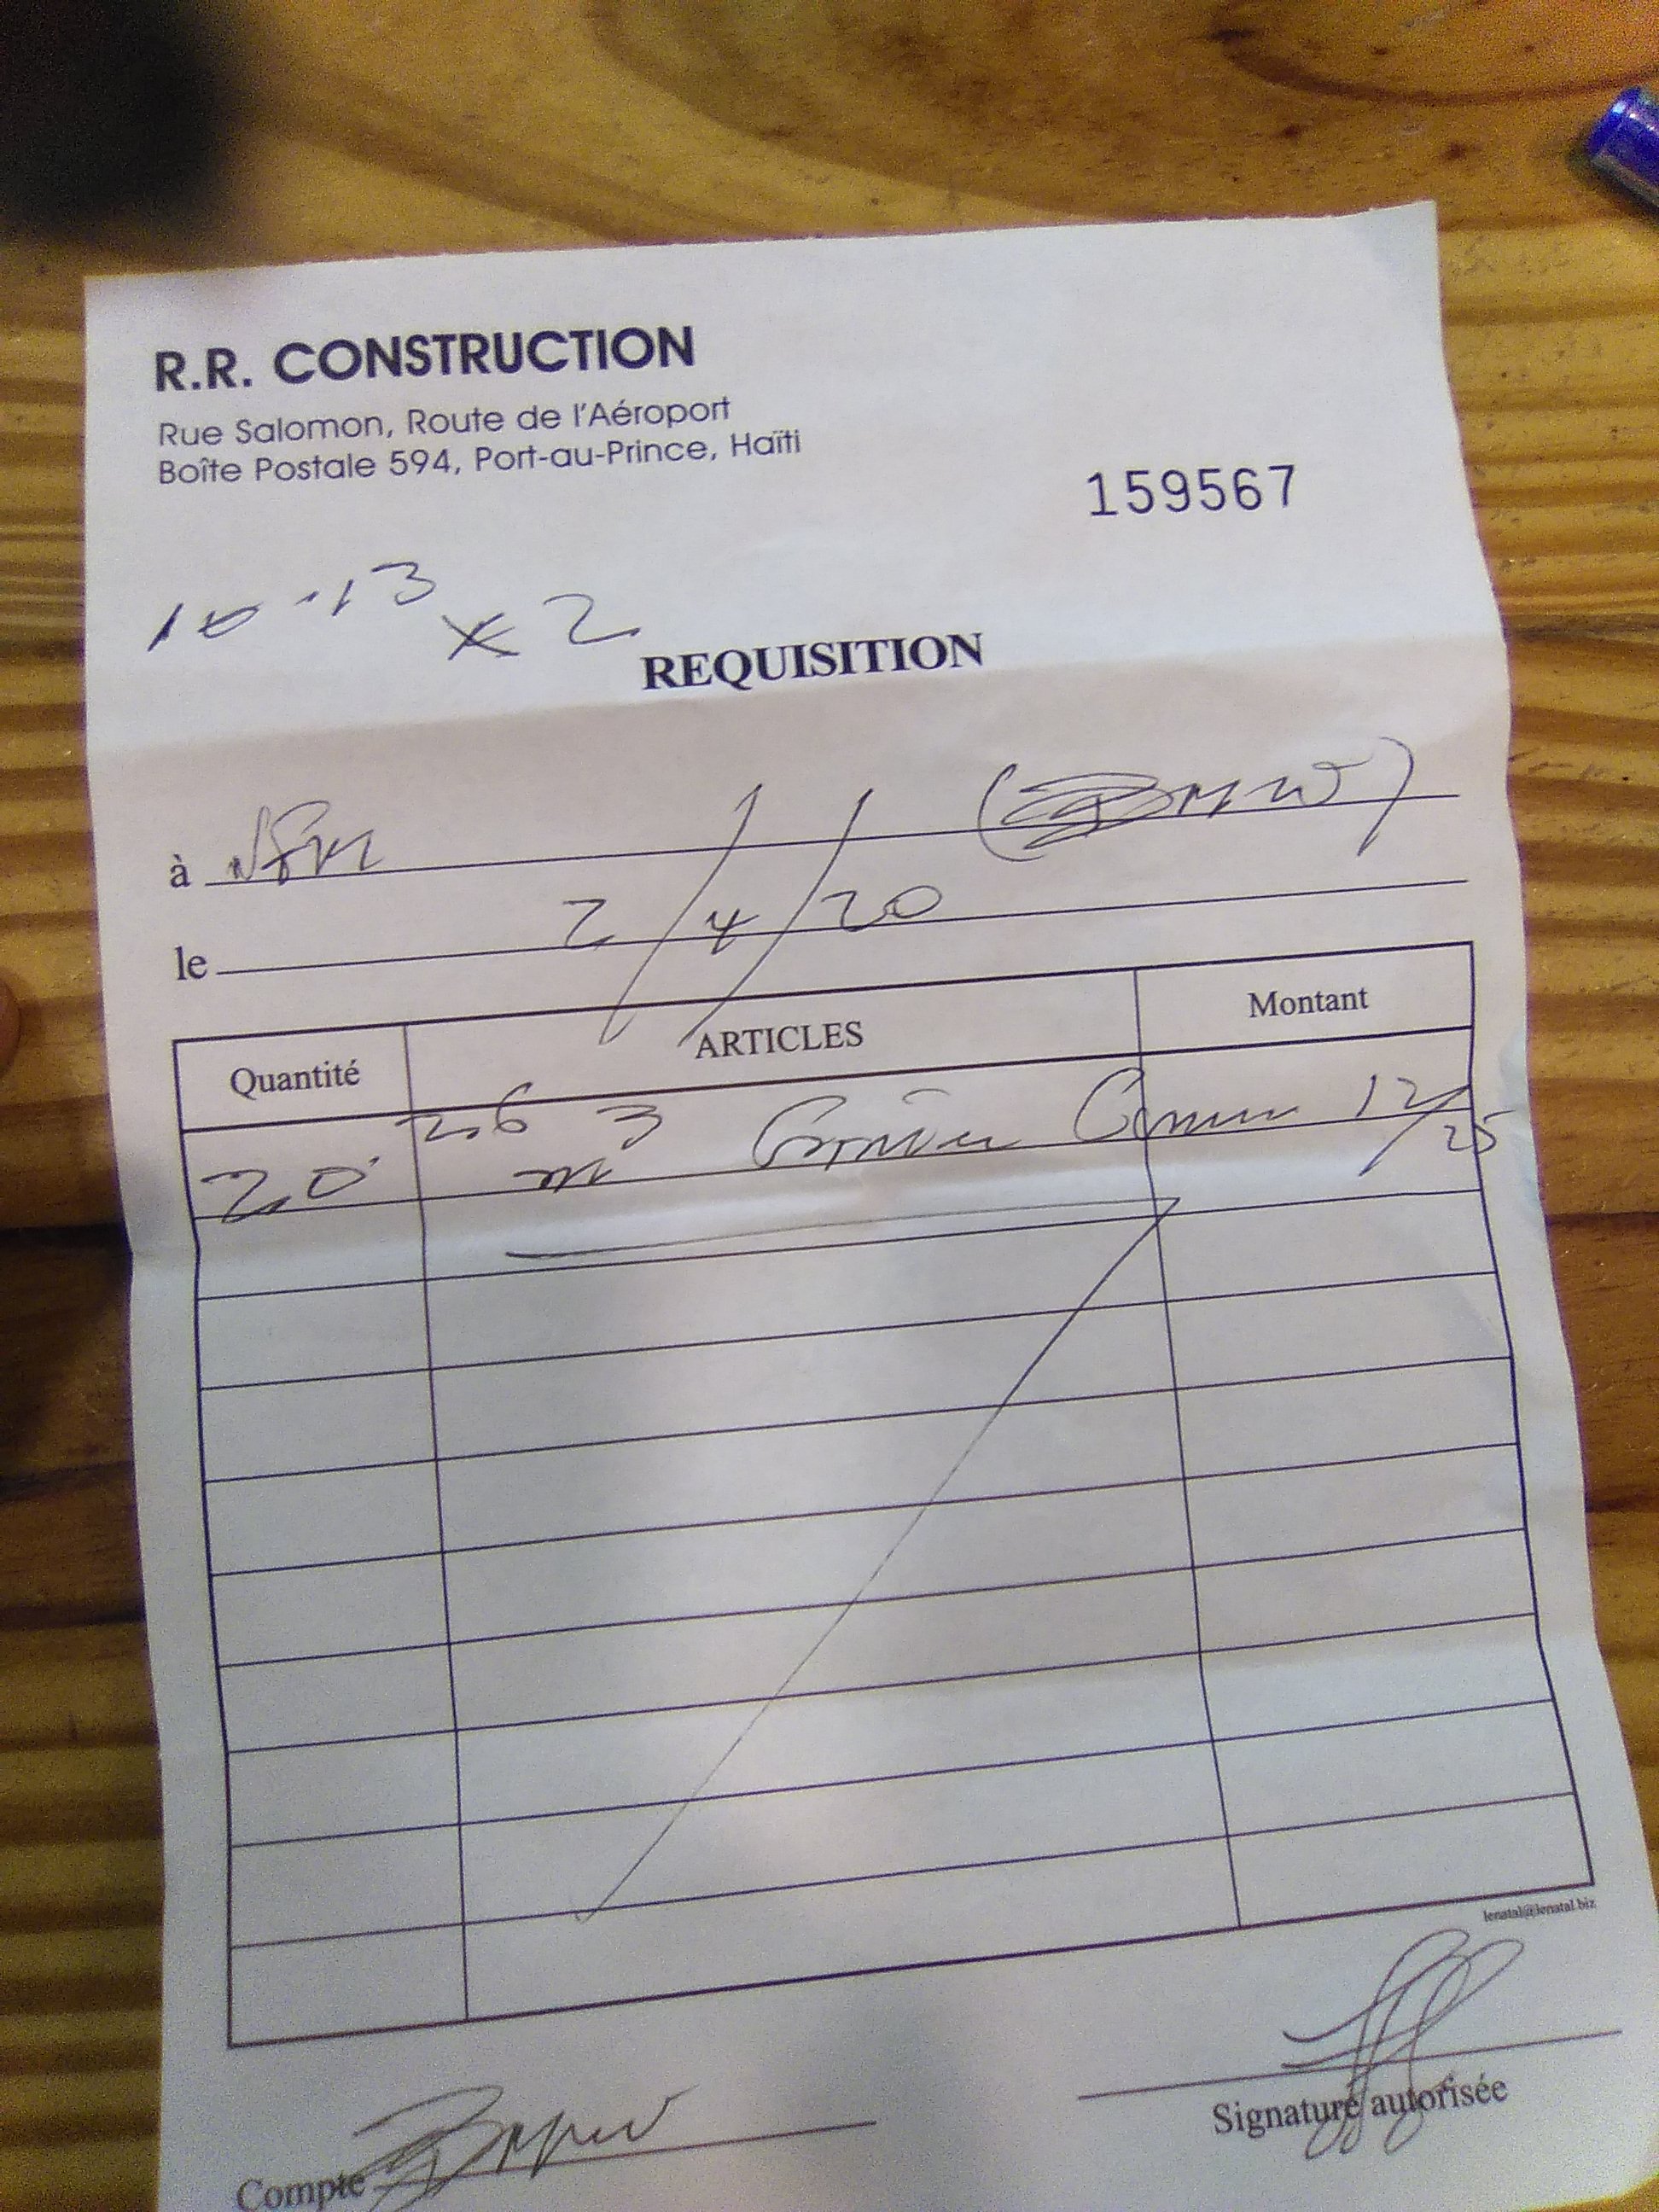 R.R. CONSTRUCTION
Rue Salomon, Route de l'Aéroport
Boîte Postale 594, Port-au-Prince, Haïti
159567
10-13 x 2
REQUISITION
à
le 2/4/20
Quantité ARTICLES Montant
26 3
20 m³ 12/25
lenatal@lenatal.biz
Signature autorisée
Compte